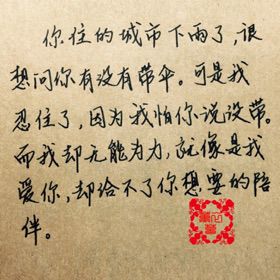 你住的城市下雨了，很
想问你有没有带伞。可是我
忍住了，因为我怕你说没带。
而我却无能为力，就像是我
爱你，却给不了你想要的陪
伴。